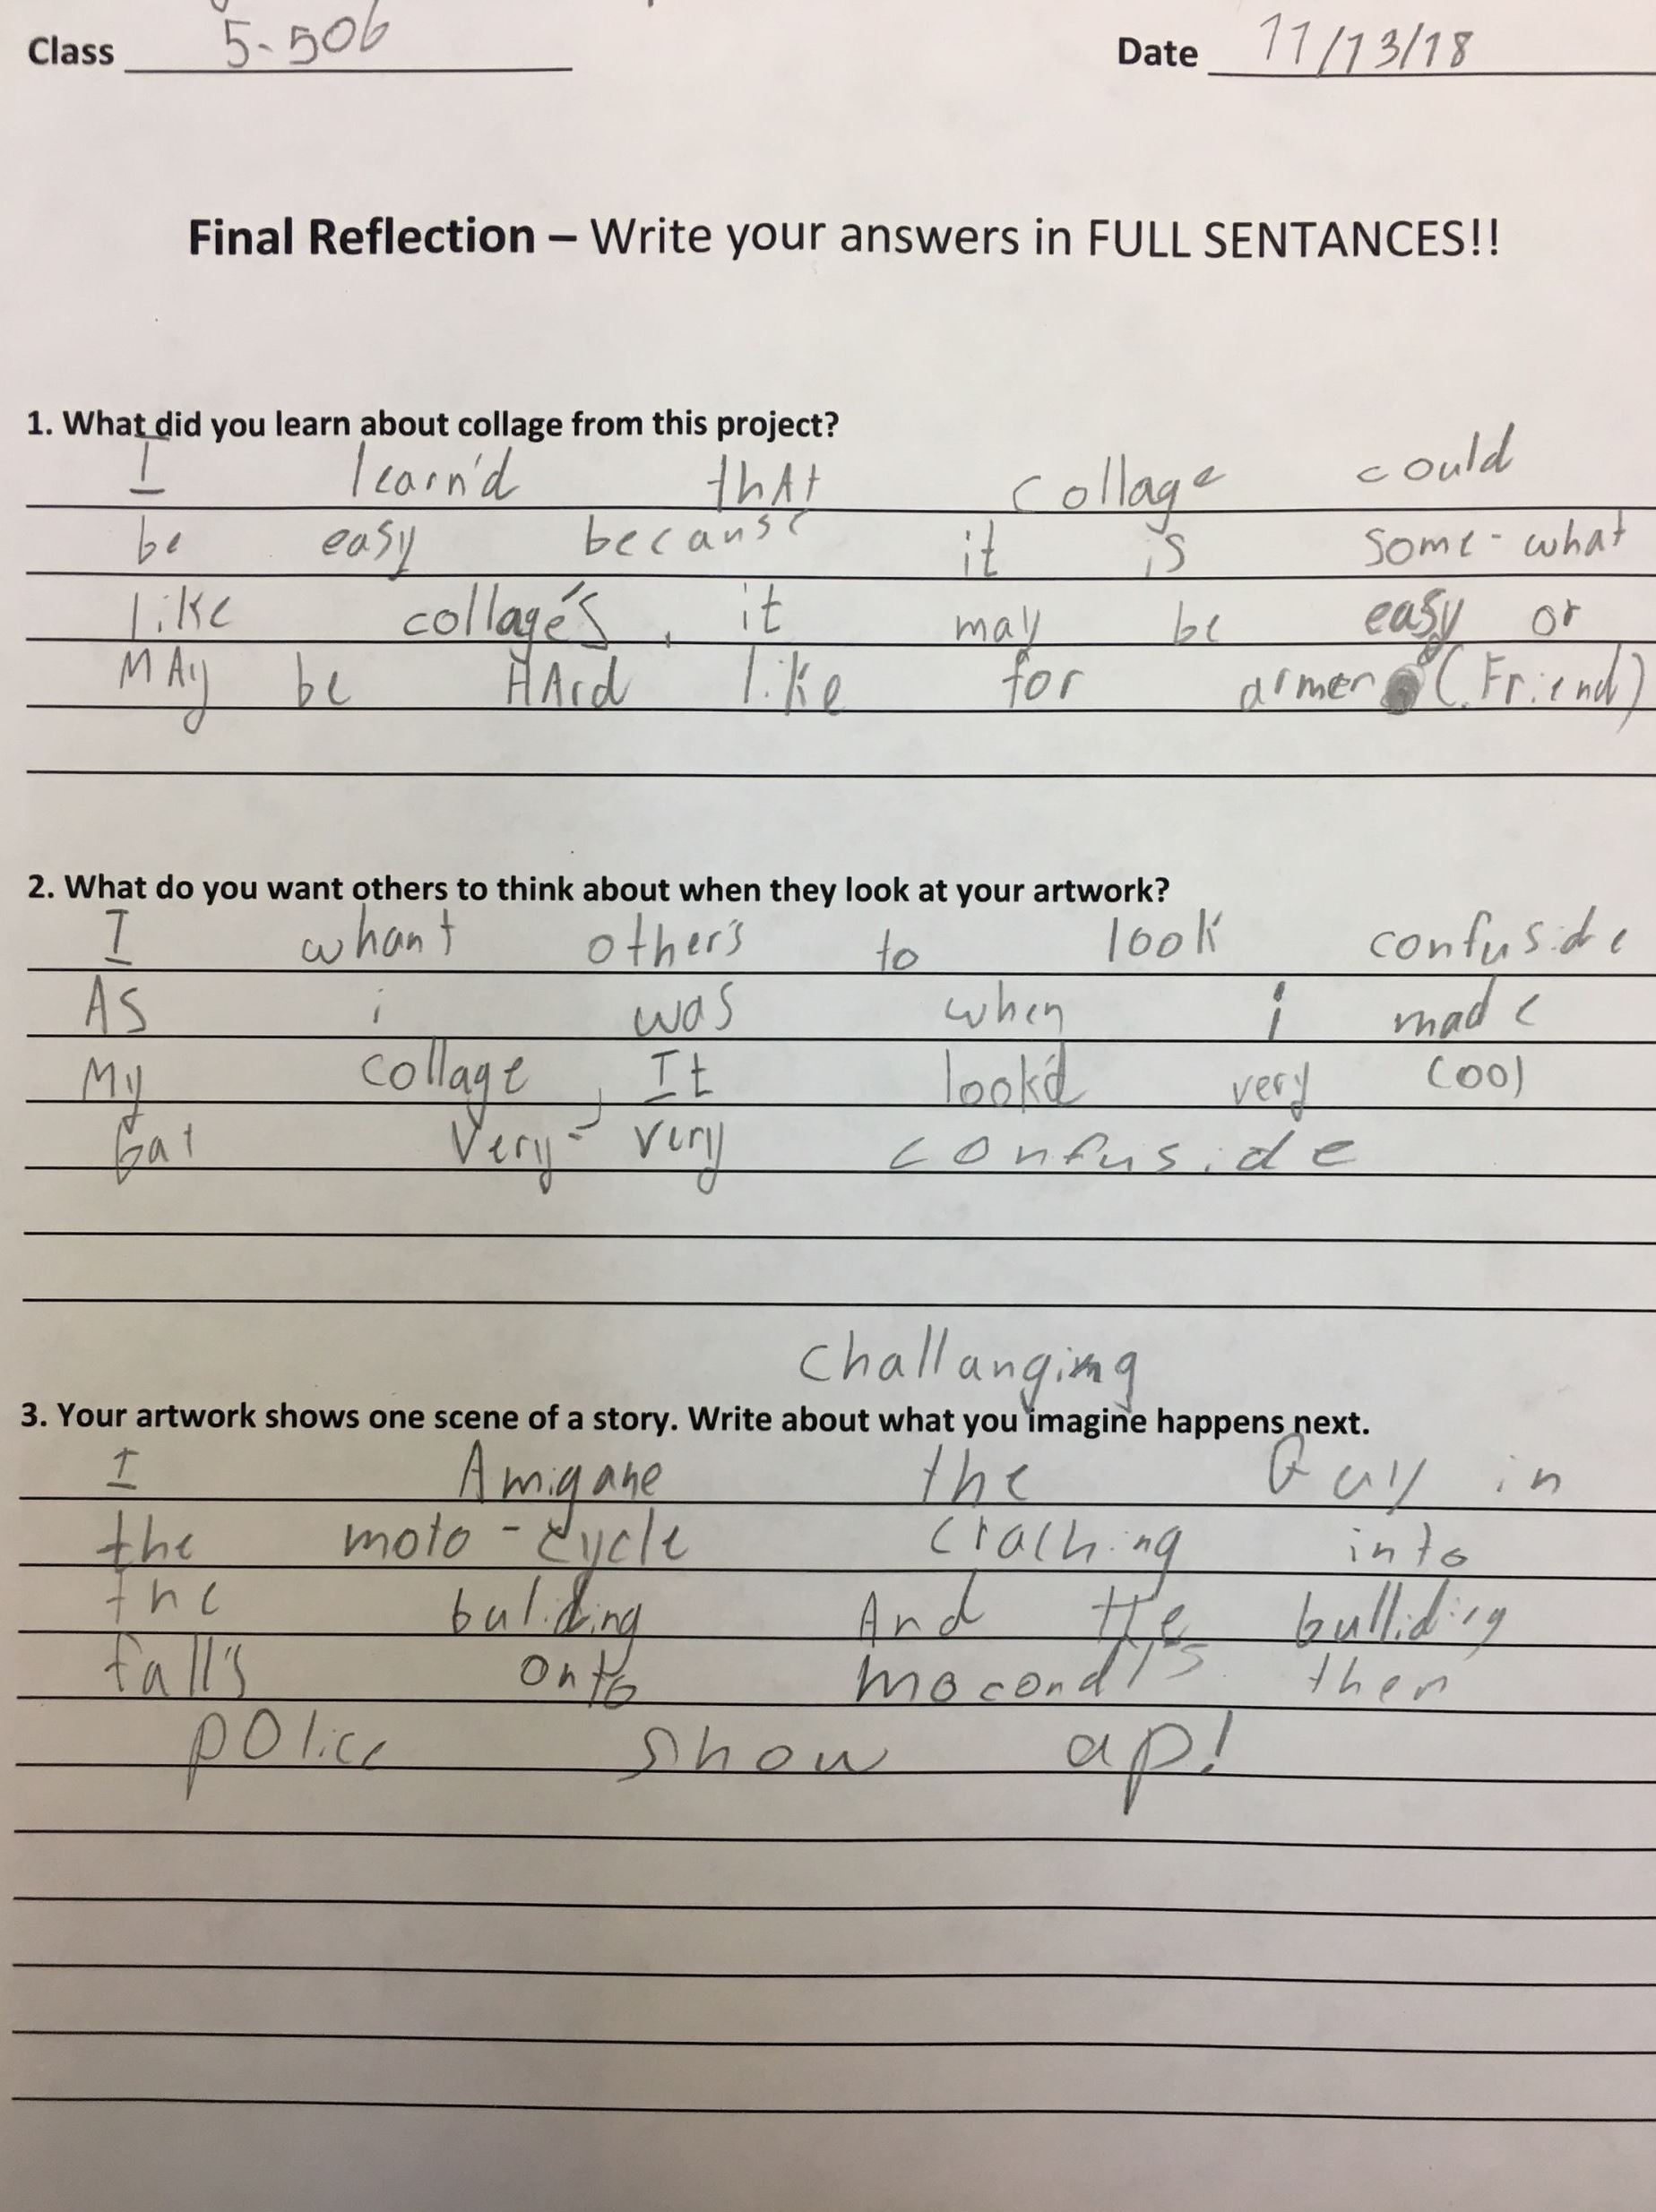 Class 5-506 Date 11/13/18
Final Reflection – Write your answers in FULL SENTANCES!!
1. What did you learn about collage from this project?
I learn'd thAt collage could
be easy because it is some-what
like collage's, it may be easy or
MAy be HArd like for armer (Friend)
2. What do you want others to think about when they look at your artwork?
I whant other's to look confuside
AS i was when i made
My collage, It look'd very cool
bat Very- very confuside
challanging
3. Your artwork shows one scene of a story. Write about what you imagine happens next.
I Amigane the Guy in
the moto-cycle craching into
the bulding And the bulliding
fall's onto mocond's then
police show ap!